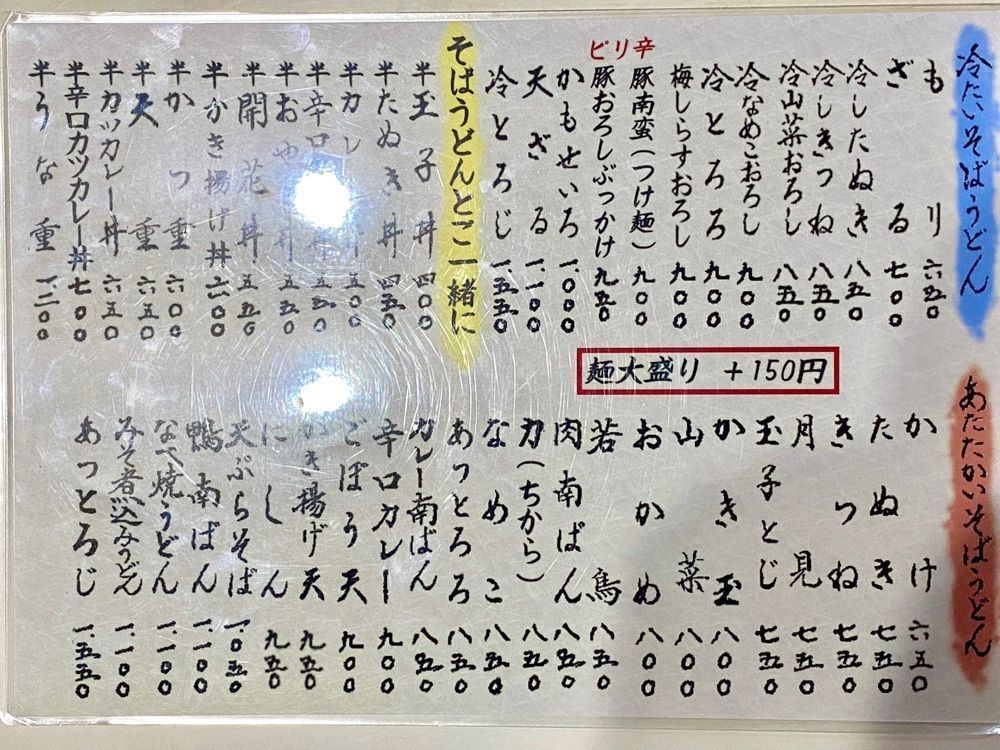 冷たいそばうどん
もり 六五〇
ざる 七〇〇
冷したぬき 八五〇
冷しきつね 八五〇
冷山菜おろし 八五〇
冷なめこおろし 九〇〇
冷とろろ 九〇〇
梅しらすおろし 九〇〇
豚南蛮(つけ麺) 九〇〇
ピリ辛
豚おろしぶっかけ 九五〇
かもせいろ 一.〇〇〇
天ざる 一.一〇〇
冷とろじ 一.五五〇
そばうどんとご一緒に
半玉子丼 四〇〇
半たぬき丼 四五〇
半カレー丼 五〇〇
半辛口 丼 五五〇
半おやこ丼 五五〇
半開花丼 五五〇
半かき揚げ丼 六〇〇
半かつ重 六〇〇
半天重 六五〇
半カツカレー丼 六五〇
半辛口カツカレー丼 七〇〇
半うな重 一.二〇〇
麺大盛り +150円
あたたかいそばうどん
かけ 六五〇
たぬき 七五〇
きつね 七五〇
月見 七五〇
玉子とじ 七五〇
かき玉 八〇〇
山菜 八〇〇
おかめ 八〇〇
若鳥 八五〇
肉南ばん 八五〇
力(ちから) 八五〇
なめこ 八五〇
あっとろろ 八五〇
カレー南ばん 八五〇
辛口カレー 九〇〇
ごぼう天 九〇〇
かき揚げ天 九五〇
にしん 九五〇
天ぷらそば 一.〇五〇
鴨南ばん 一.一〇〇
なべ焼うどん 一.一〇〇
みそ煮込みうどん 一.一〇〇
あっとろじ 一.五五〇